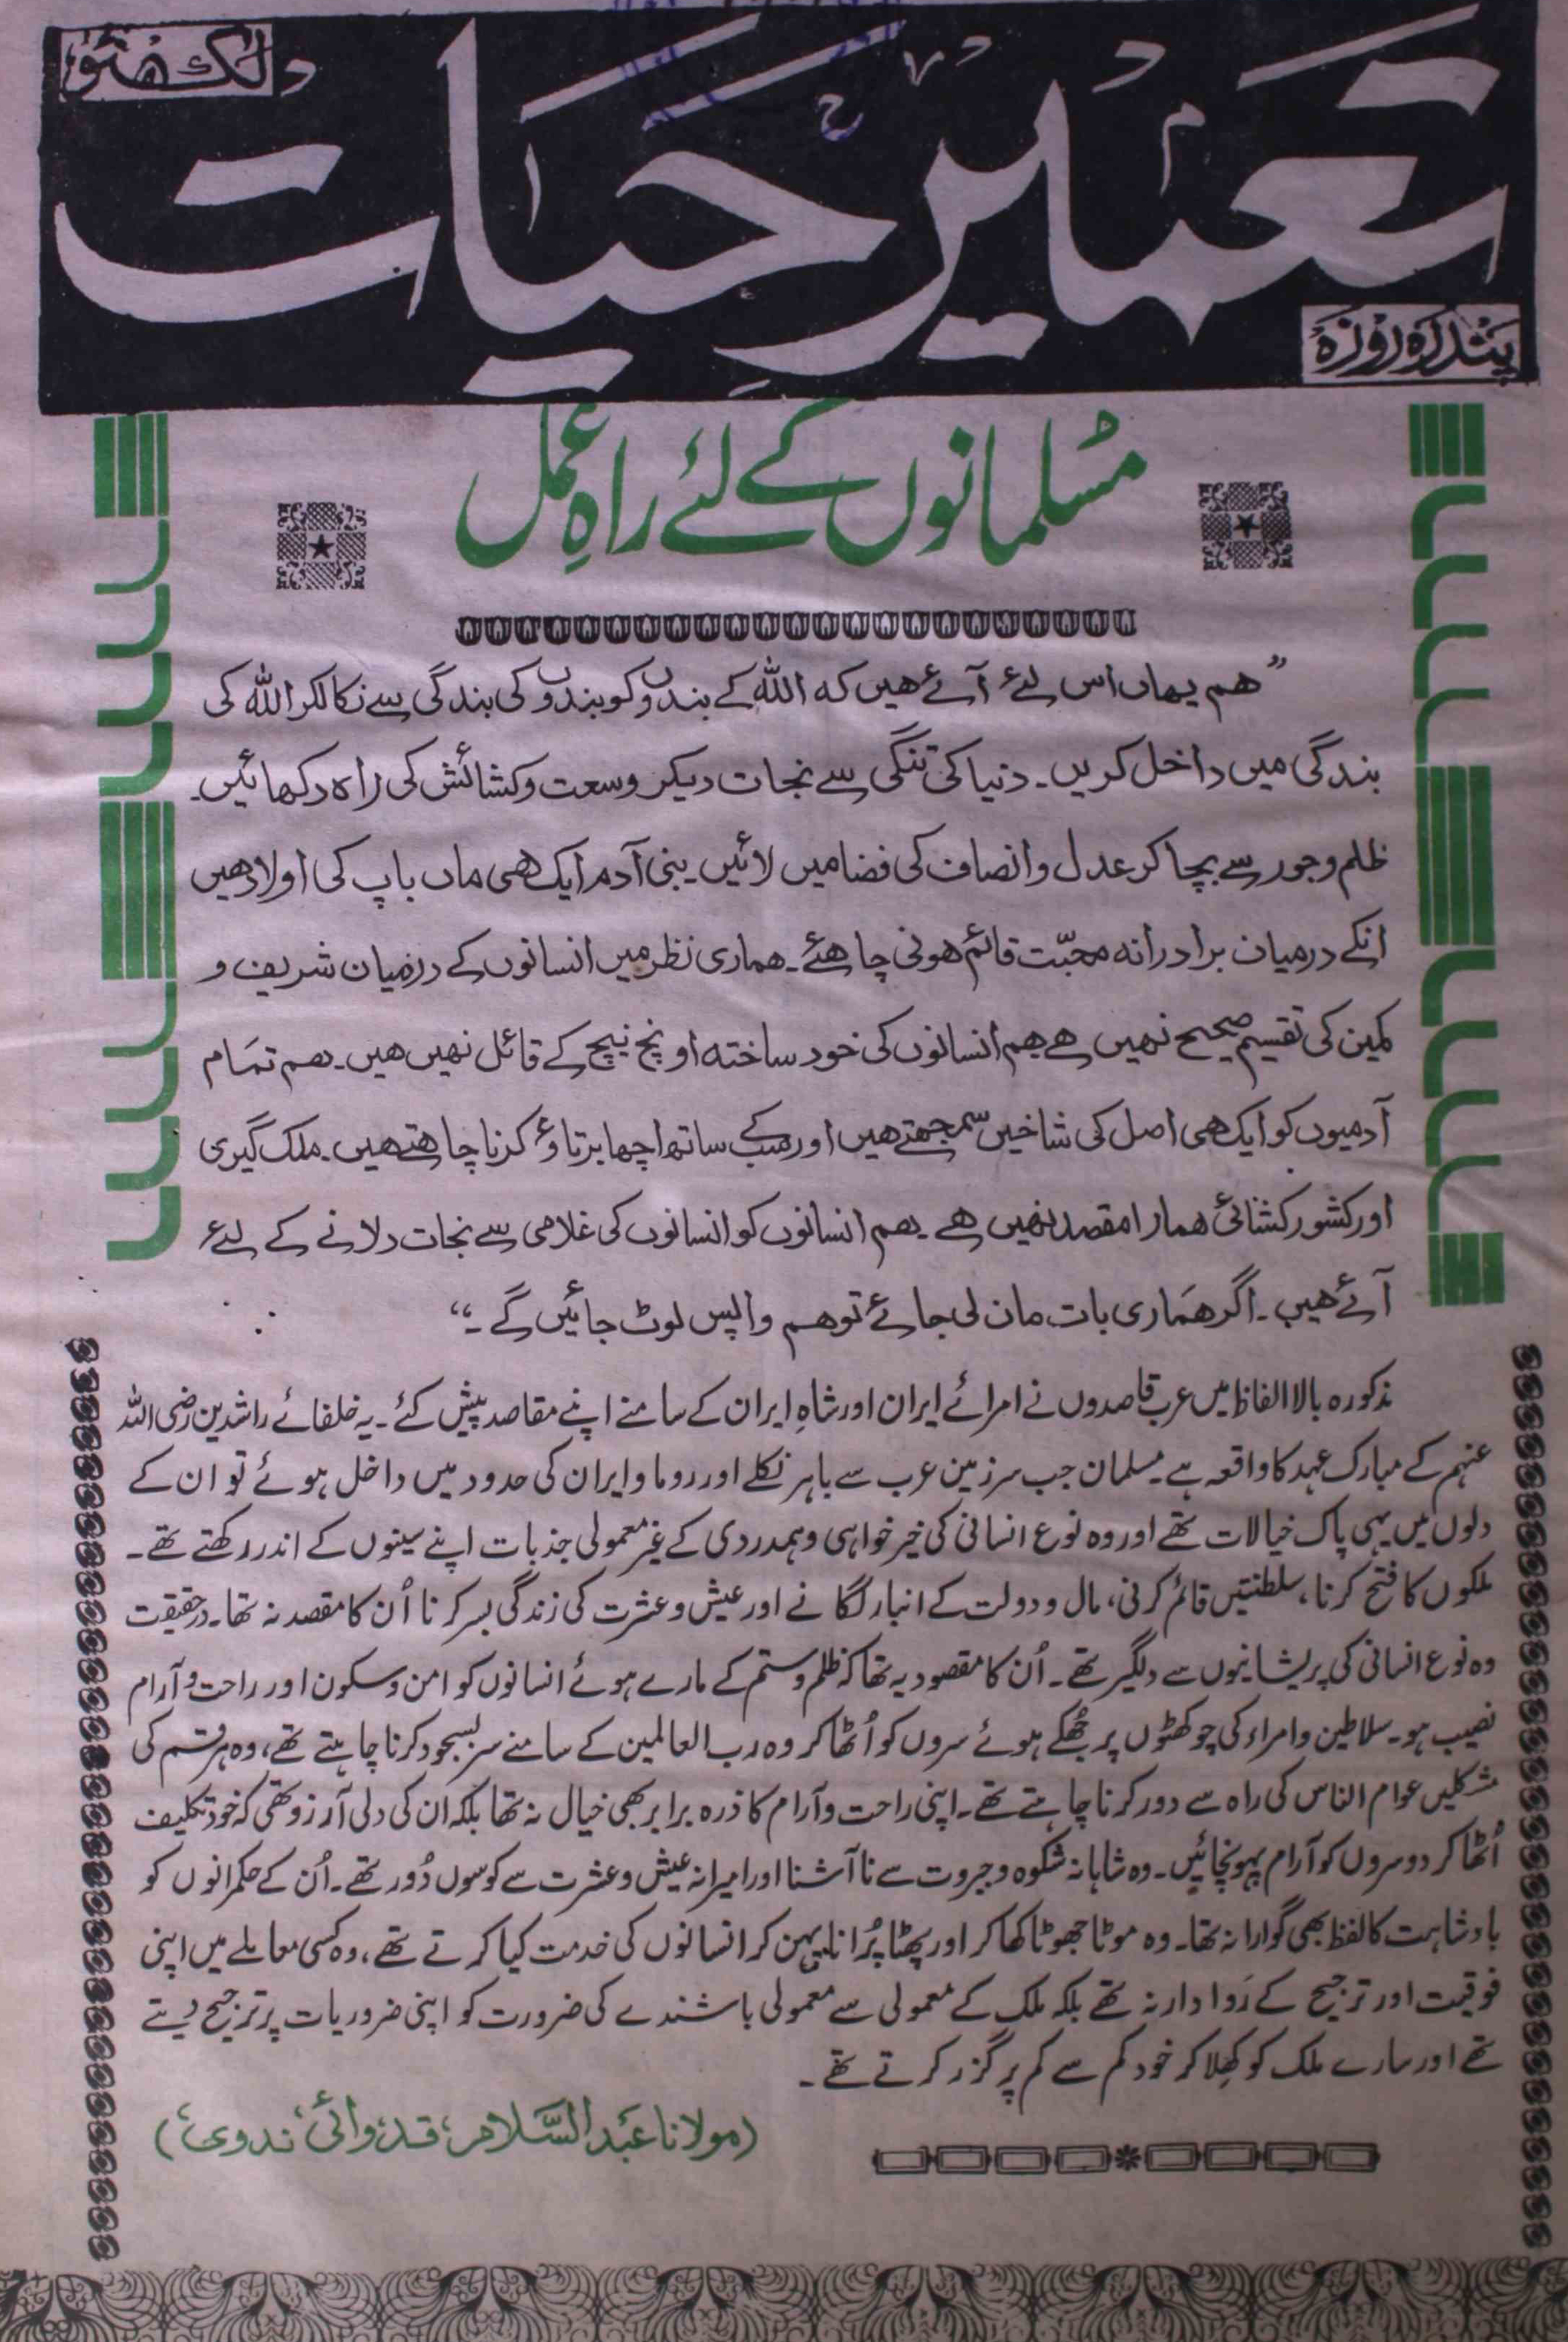 لکھنؤ
تعمیر حیات
پندرہ روزہ
مسلمانوں کے لئے راہِ عمل
”ہم یہاں اس لئے آئے ہیں کہ اللہ کے بندوں کو بندوں کی بندگی سے نکالکر اللہ کی
بندگی میں داخل کریں۔ دنیا کی تنگی سے نجات دیکر وسعت وکشائش کی راہ دکھائیں۔
ظلم وجور سے بچا کر عدل وانصاف کی فضا میں لائیں۔ بنی آدم ایک ہی ماں باپ کی اولاد ہیں
انکے درمیان برادرانہ محبّت قائم ہونی چاہئے۔ ہماری نظر میں انسانوں کے درمیان شریف و
کمین کی تقسیم صحیح نہیں ہے ہم انسانوں کی خود ساختہ اونچ نیچ کے قائل نہیں ہیں۔ ہم تمام
آدمیوں کو ایک ہی اصل کی شاخیں سمجھتے ہیں اور سب کے ساتھ اچھا برتاؤ کرنا چاہتے ہیں۔ ملک گیری
اور کشور کشائی ہمارا مقصد نہیں ہے۔ ہم انسانوں کو انسانوں کی غلامی سے نجات دلانے کے لئے
آئے ہیں۔ اگر ہماری بات مان لی جائے تو ہم واپس لوٹ جائیں گے۔“
مذکورہ بالا الفاظ میں عرب قاصدوں نے امرائے ایران اور شاہِ ایران کے سامنے اپنے مقاصد پیش کئے۔ یہ خلفائے راشدین رضی اللہ
عنہم کے مبارک عہد کا واقعہ ہے۔ مسلمان جب سرزمین عرب سے باہر نکلے اور روما و ایران کی حدود میں داخل ہوئے تو ان کے
دلوں میں یہی پاک خیالات تھے اور وہ نوع انسانی کی خیر خواہی وہمدردی کے غیر معمولی جذبات اپنے سینوں کے اندر رکھتے تھے۔
ملکوں کا فتح کرنا، سلطنتیں قائم کرنی، مال و دولت کے انبار لگانے اور عیش و عشرت کی زندگی بسر کرنا اُن کا مقصد نہ تھا۔ درحقیقت
وہ نوع انسانی کی پریشانیوں سے دلگیر تھے۔ اُن کا مقصود یہ تھا کہ ظلم و ستم کے مارے ہوئے انسانوں کو امن و سکون اور راحت و آرام
نصیب ہو۔ سلاطین و امراء کی چوکھٹوں پر جُھکے ہوئے سروں کو اُٹھا کر وہ رب العالمین کے سامنے سربسجود کرنا چاہتے تھے، وہ ہر قسم کی
مشکلیں عوام الناس کی راہ سے دور کرنا چاہتے تھے۔ اپنی راحت و آرام کا ذرہ برابر بھی خیال نہ تھا بلکہ ان کی دلی آرزو تھی کہ خود تکلیف
اُٹھا کر دوسروں کو آرام پہونچائیں۔ وہ شاہانہ شکوہ و جبروت سے ناآشنا اور امیرانہ عیش و عشرت سے کوسوں دُور تھے۔ اُن کے حکمرانوں کو
بادشاہت کا لفظ بھی گوارا نہ تھا۔ وہ موٹا جھوٹا کھا کر اور پھٹا پُرانا پہن کر انسانوں کی خدمت کیا کرتے تھے، وہ کسی معاملے میں اپنی
فوقیت اور ترجیح کے رَوادار نہ تھے بلکہ ملک کے معمولی سے معمولی باشندے کی ضرورت کو اپنی ضروریات پر ترجیح دیتے
تھے اور سارے ملک کو کھِلا کر خود کم سے کم پر گزر کرتے تھے۔
(مولانا عبد السَّلام، قدوائی، ندوی)